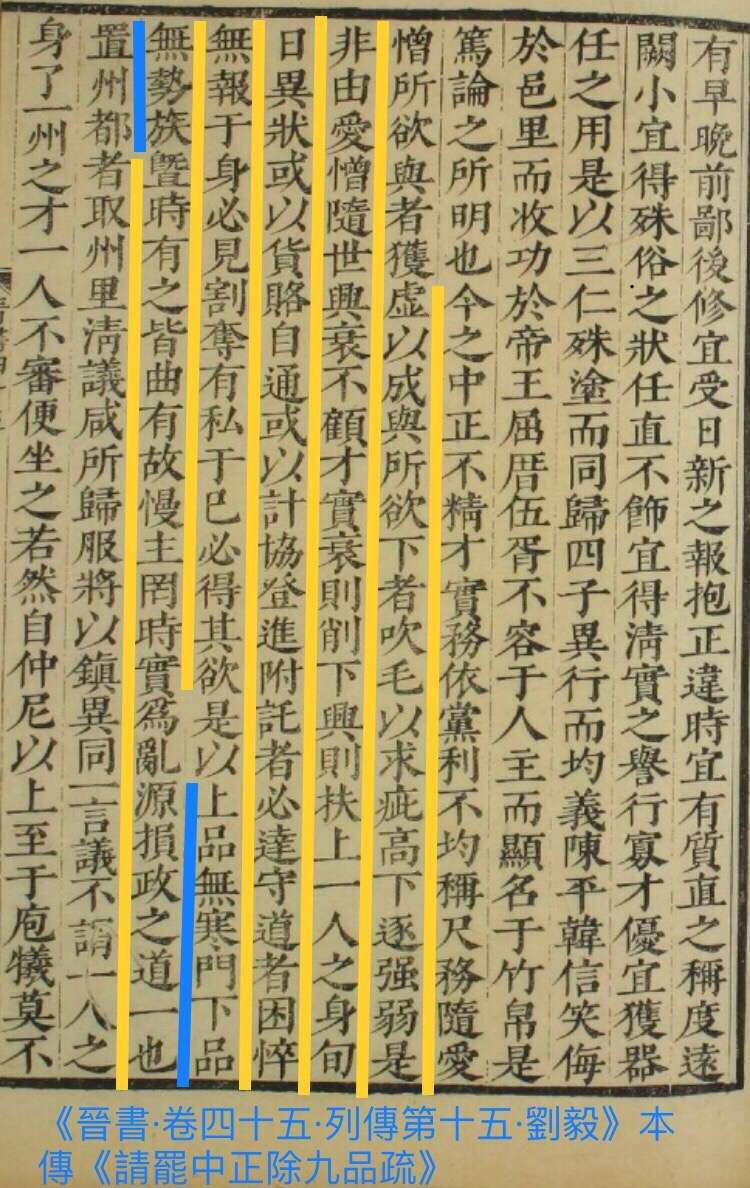 有早晚前鄙後修宜受日新之報抱正違時宜有質直之稱度遠
闕小宜得殊俗之狀任直不飾宜得清實之譽行寡才優宜獲器
任之用是以三仁殊塗而同歸四子異行而均義陳平韓信笑侮
於邑里而收功於帝王屈厝伍胥不容于人主而顯名于竹帛是
篤論之所明也今之中正不精才實務依黨利不均稱尺務隨愛
憎所欲與者獲虛以成與所欲下者吹毛以求疵高下逐强弱是
非由愛憎隨世興衰不顧才實衰則削下興則扶上一人之身旬
日異狀或以貨賂自通或以計協登進附託者必達守道者困悴
無報于身必見割奪有私于已必得其欲是以上品無寒門下品
無勢族暨時有之皆曲有故慢主罔時實爲亂源損政之道一也
置州都者取州里淸議咸所歸服將以鎮異同一言議不謂一人之
身了一州之才一人不審便坐之若然自仲尼以上至于庖犧莫不
《晉書·卷四十五·列傳第十五·劉毅》本
傳《請罷中正除九品疏》